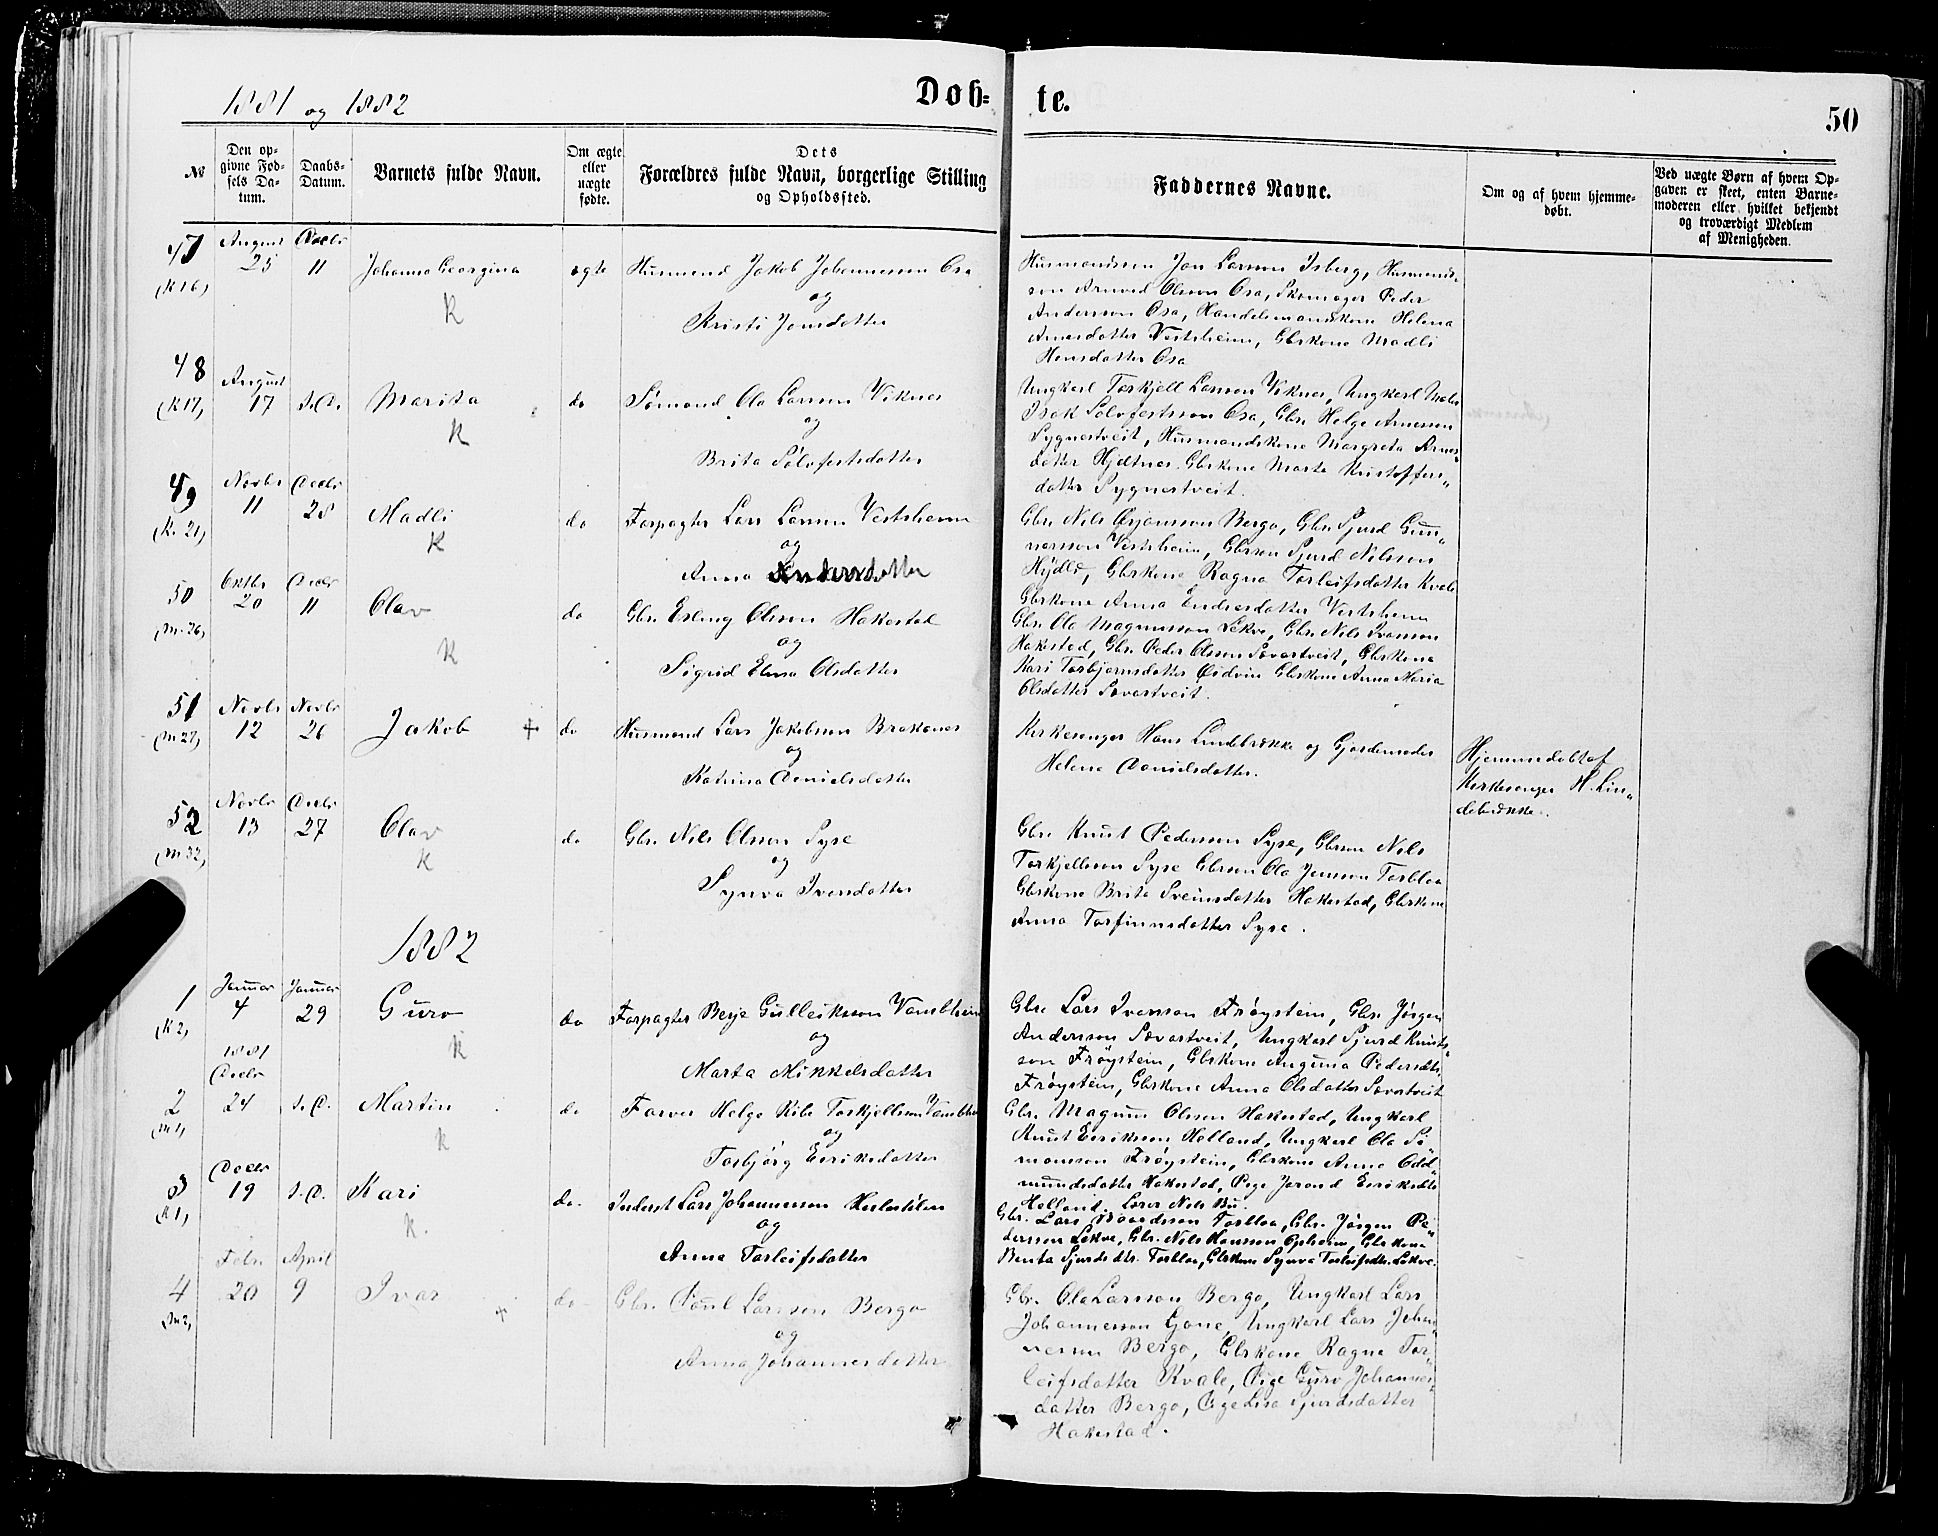 1881 og 1882
Døb=
te.
50
№
Den op-
givne Fød-
sels Da-
tum.
Daabs-
Datum.
Barnets fulde Navn.
Om ægte
eller
uægte
fødte.
Dets
Forældres fulde Navn, borgerlige Stilling
og Opholdssted.
Faddernes Navne.
Om og af hvem hjemme-
døbt.
Ved uægte Børn af hvem Op-
gaven er skeet, enten Barne-
moderen eller hvilket bekjendt
og troværdigt Medlem
af Menigheden.
47
(K16)
August
25
Decbr
11
Johanna Georgina
K
ægte
Husmand Jakob Johannessen Osa
og
Kristi Jonsdatter
Husmandssøn Jon Larsson Isberg, Husmands-
søn Amund Olsson Osa, Skomager Peder
Andersson Osa, Handelsmandskone Helena
Arnesdatter Vestrheim, Gbrkone Madli
Hansdatter Osa
48
(K17)
August
17
s.D.
Marita
K
do
Sømand Ola Larsson Viknes
og
Brita Sølvfestsdatter
Ungkarl Torkjell Larsson Viknes, Ungkarl Maler
Isak Sølvfestsson Osa, Gbr. Helge Arnesson
Sygnestveit, Husmandskone Margreta Arnes-
datter Hjeltnes, Gbrkone Marta Kristoffers-
datter Sygnestveit.
49
(K. 21)
Novbr
11
Decbr
28
Madli
K
do
Forpagter Lars Larsson Vestrheim
og
Anna Andersdatter
Gbr. Nils Ørjansson Bergo, Gbr. Sjurd Gun-
narsson Vestrheim, Gbrsøn Sjurd Nilsson
Hylli, Gbrkone Ragna Torleifsdatter Kvale
Gbrkone Anna Endresdatter Vestrheim
50
(M. 26)
Oktbr
20
Decbr
11
Olav
K
do
Gbr. Erling Olsson Hakestad
og
Sigrid Elena Olsdatter
Gbr. Ola Magnusson Lekve, Gbr. Nils Ivarson
Hakestad, Gbr. Peder Olsson Sævartveit, Gbrkone
Kari Torbjørnsdatter Øidvin Gbrkone Anna Maria
Olsdatter Sævartveit.
51
(M 27)
Novbr
12
Novbr
26
Jakob +
do
Husmand Lars Jakobsson Brakanes
og
Katrina Danielsdatter
Kirkesanger Hans Lindebrække og Gjordemoder
Helena Danielsdatter.
Hjemmedøbt af
Kirkesanger H. Lin-
debrække.
52
(M 32)
Novbr
13
Decbr
27
Olav
K
do
Gbr. Nils Olsson Syse
og
Synva Ivarsdatter
Gbr. Knut Pedersson Syse, Gbrson Nils
Torkjellsson Syse Gbrson Ola Jonsson Torbloa
Gbrkone Brita Sveinsdatter Hakestad, Gbrkone
Anna Torfinnsdatter Syse.
1882
1
(K 2)
Januar
4
Januar
29
Guro
K
do
Forpagter Berje Gulleiksson Vambheim
og
Marta Mikkelsdatter
Gbr. Lars Ivarson Frøystein, Gbr. Jørgen
Andersson Sævartveit, Ungkarl Sjurd Knuts-
son Frøystein, Gbrkone Anguna Pedersdtr.
Frøystein, Gbrkone Anna Olsdatter Sævartveit
2
(M1)
1881
Decbr
24
s.D.
Martin
K
do
Farver Helge Ribe Torkjellsson Vambheim
og
Torbjørg Eiriksdatter
Gbr. Magnus Olsson Hakestad, Ungkarl
Knut Eiriksson Helland, Ungkarl Ola Si-
monson Frøystein, Gbrkone Anna Odd-
mundsdatter Hakestad, Pige Jorand Eiriksdtr
Helland. Lærer Nils Bu.
3
(K1)
Decbr
19
s.D.
Kari
K.
do.
Inderst Lars Johannesson
og
Anna Torleifsdatter
Gbr. Lars Baardsson Torbloa, Gbr. Jørgen Pe-
dersson Lekve, Gbr. Nils Hansson Opheim, Gbrkone
Benta Sjursdtr. Torbloa, Gbrkone Synva Torleifsdtr. Lekve.
4
(M2)
Febr.
20
April
9
Ivar +
do
Gbr. Poul Larsson Bergo
og
Anna Johannesdatter
Gbr. Ola Larsson Bergo, Ungkarl Lars
Johannesson Tjone, Ungkarl Lars Johan-
nesson Bergo, Gbrkone Ragna Tor-
leifsdatter Kvale, Pige Guro Johannes-
datter Bergo, Pige Lisa Sjurdsdatter
Hakestad.